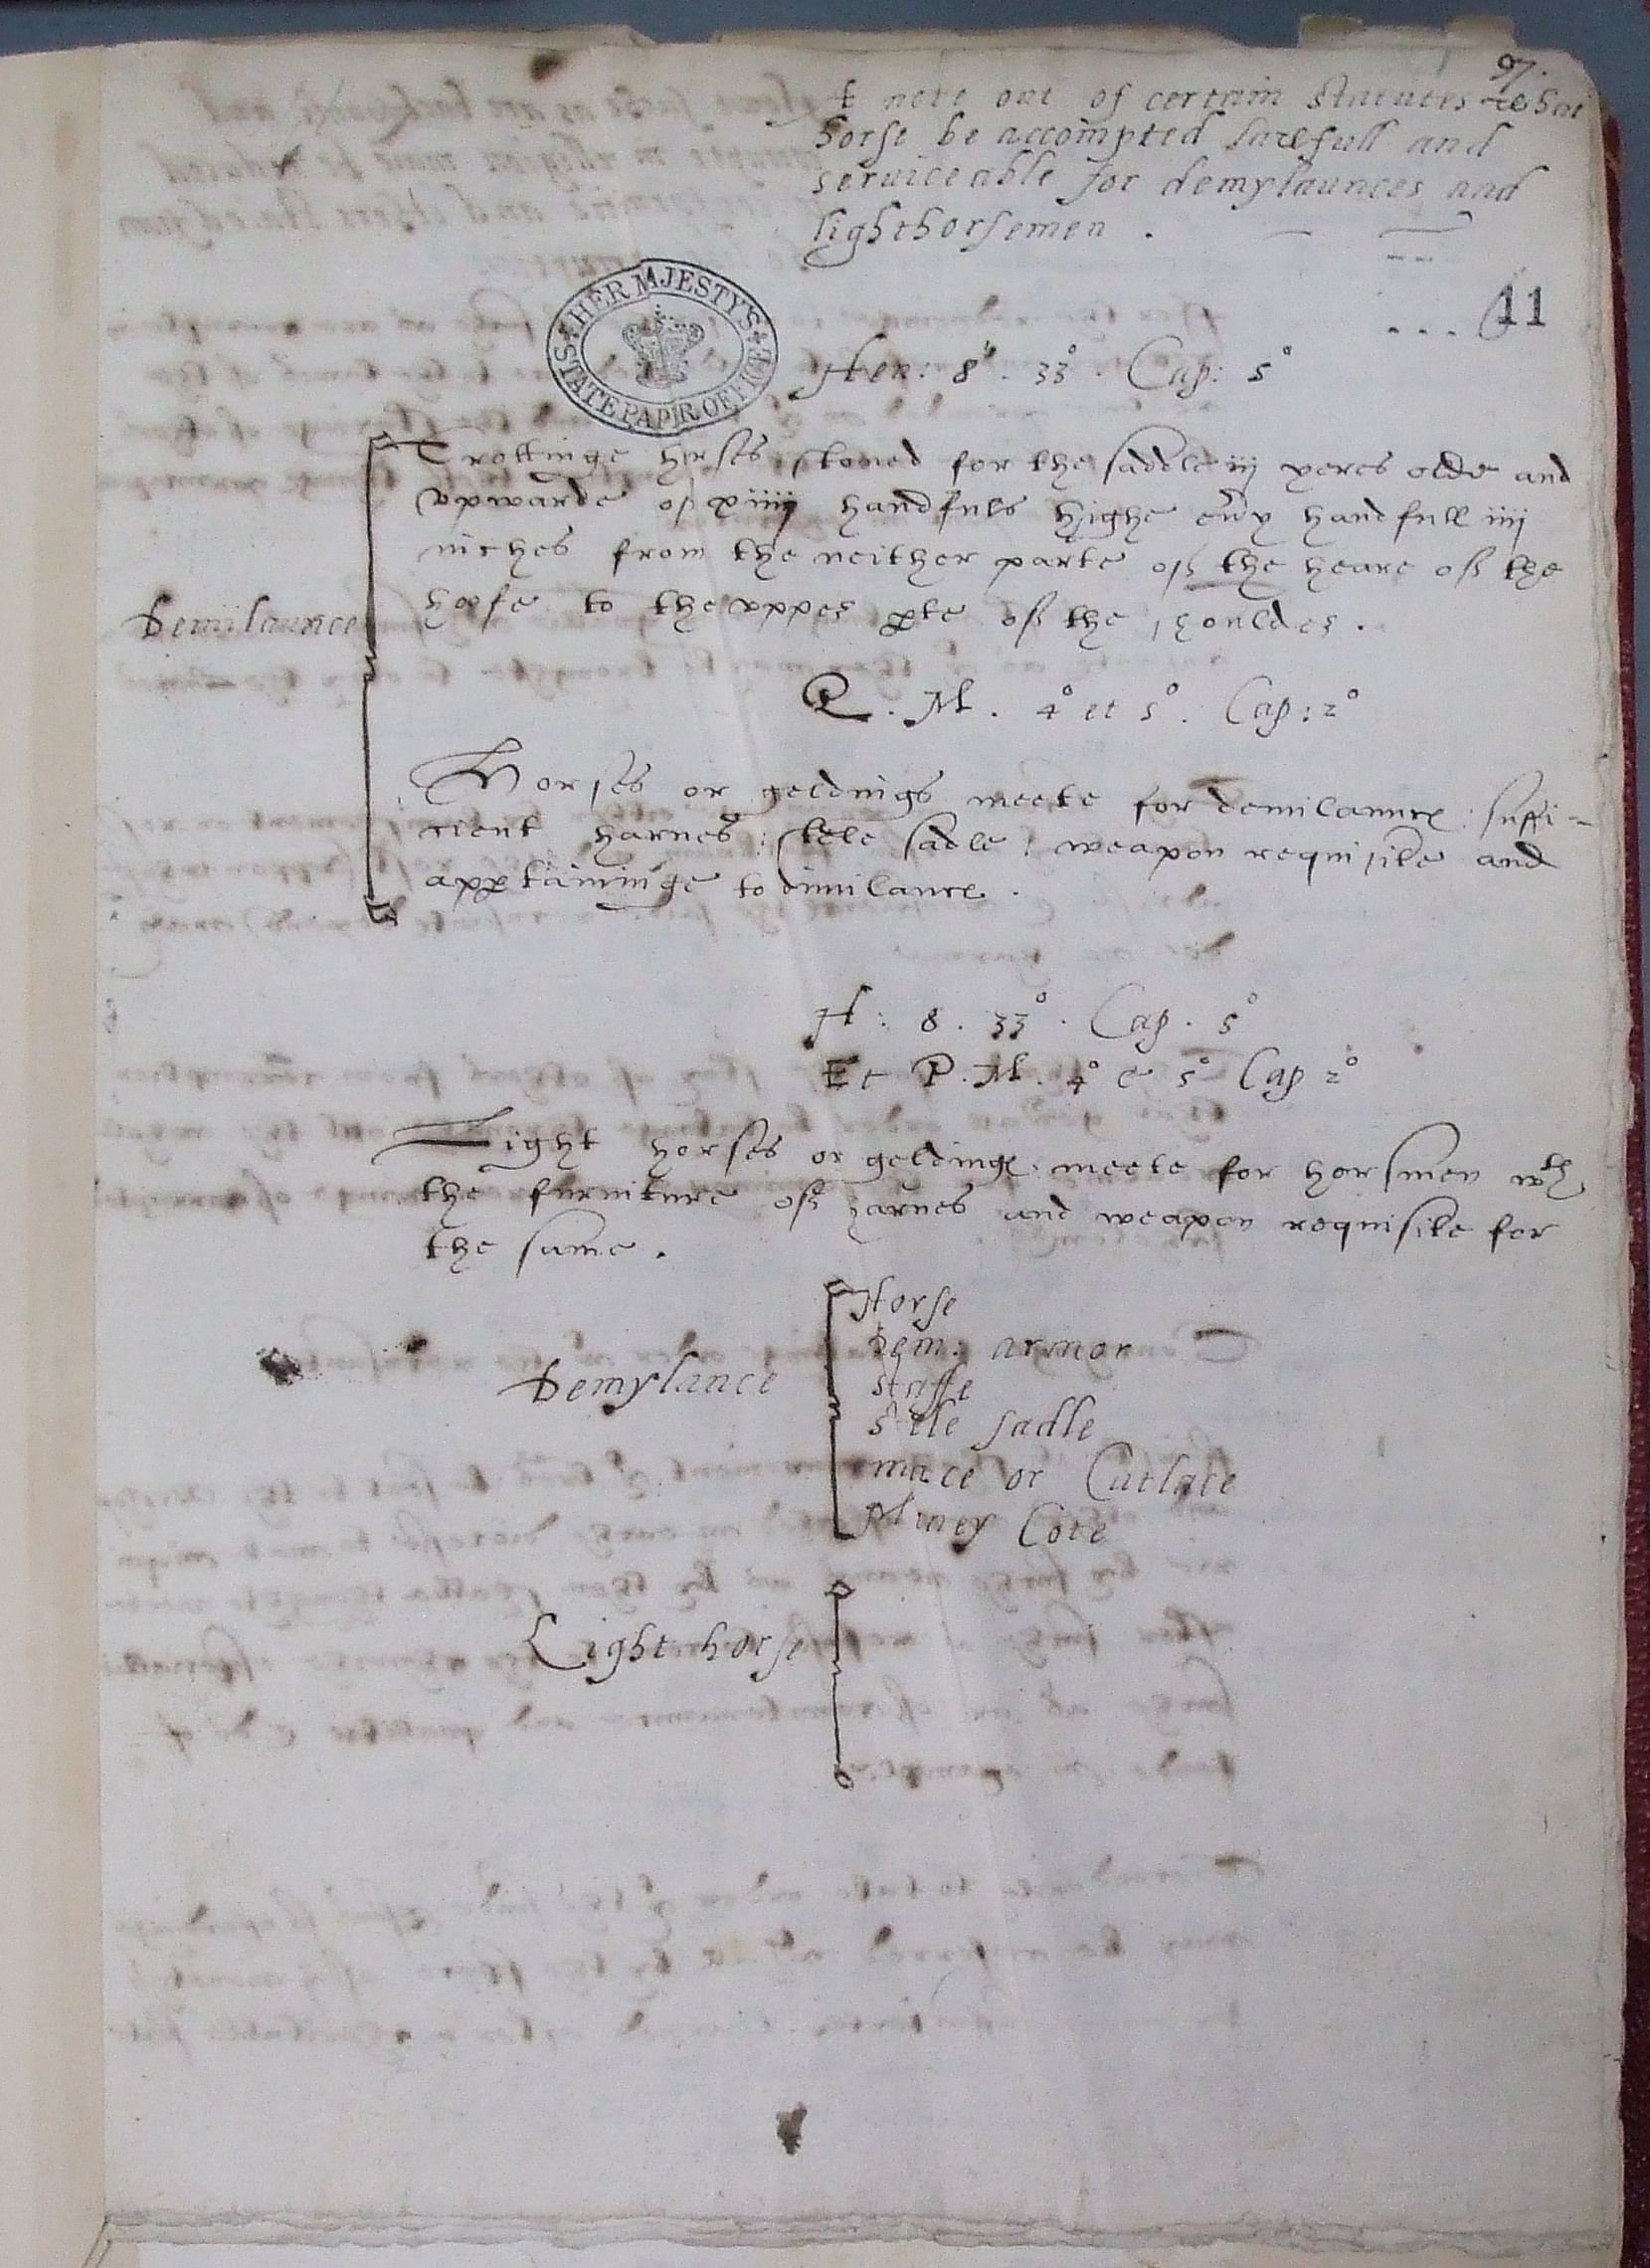 97.
A note out of certain Statutes what
horse be accompted lawfull and
seruiceable for demylaunces and
lighthorsemen .
11
HER MAJESTY'S
STATE PAPER OFFICE
Hen: 8ⁱ . 33° . Cap: 5°
Trottinge horses stoned for the saddle iij yeres olde and
vpwarde of xiiij handfuls highe eũy handfull iiij
inches from the neither parte off the heare off the
hoofe to the vpper ꝑte off the shoulder .
Demilaunce
Q . M . 4° et 5° . Cap : 2°
Horses or geldings meete for demilaunce : suffi-
cient harnes : stele sadle : weapon requisite and
apꝑtaininge to dimilaunce .
H : 8 . 33° . Cap . 5°
Et P . M . 4° e 5° Cap 2°
Light horses or geldinges meete for horsmen wth
the furniture off harnes and weapon requisite for
the same .
Demylance
Horse
Dem: armor
staffe
stele sadle
mace or Cutlace
Cote
Light horse